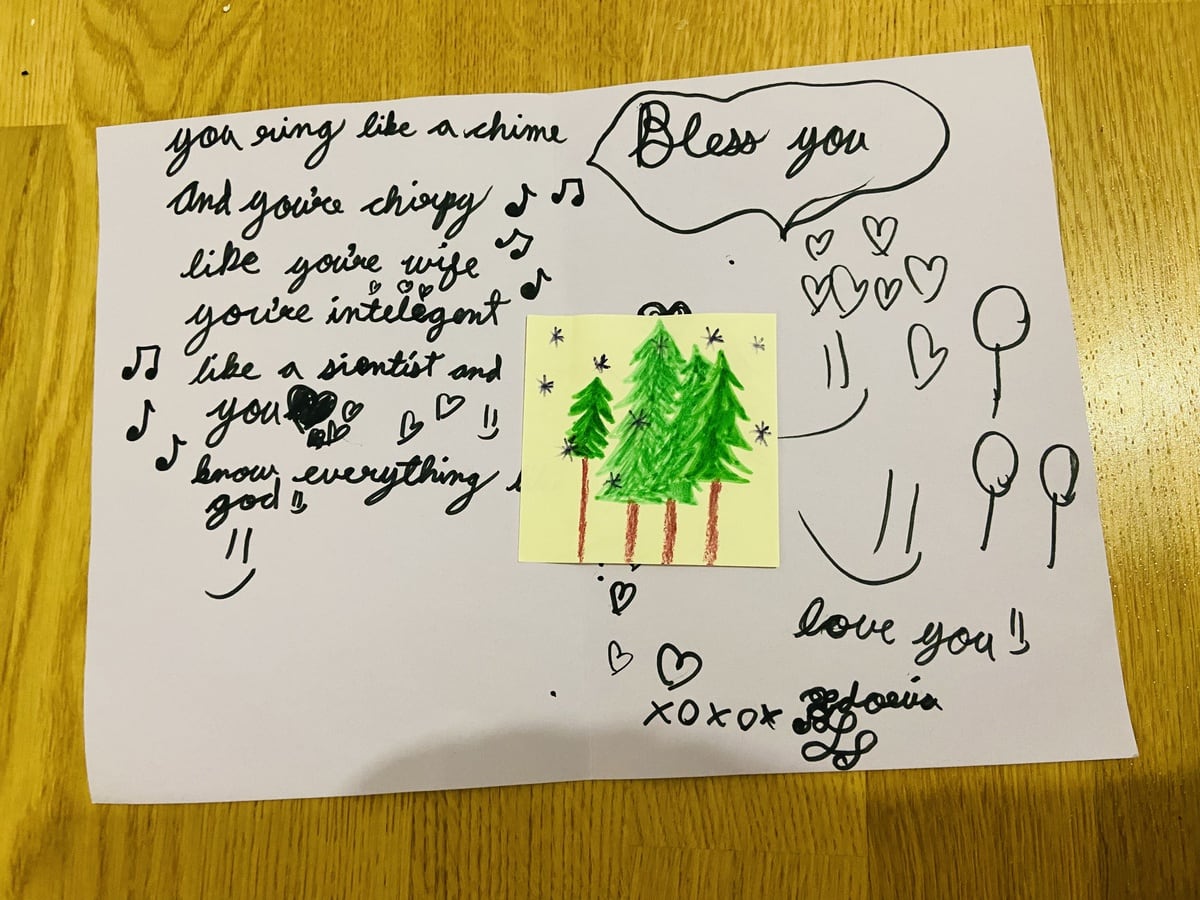 you ring like a chime
And you're chirpy
like you're wife
you're intelegent
like a sientist and
you
know everything
god
Bless you
love you
xoxox